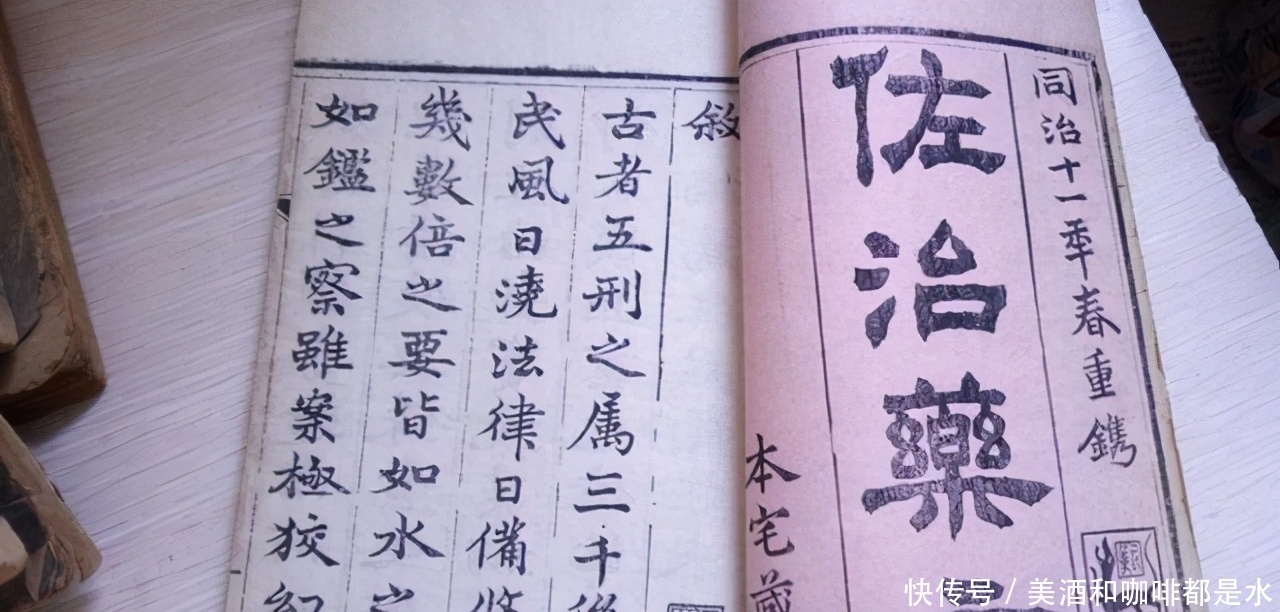 同治十一秊春重鐫
佐治藥
本宅藏
敘
古者五刑之属三千
民風日澆法律日備
幾數倍之要皆如水之
如鑑之察雖案極狡
快传号 / 美酒和咖啡都是水